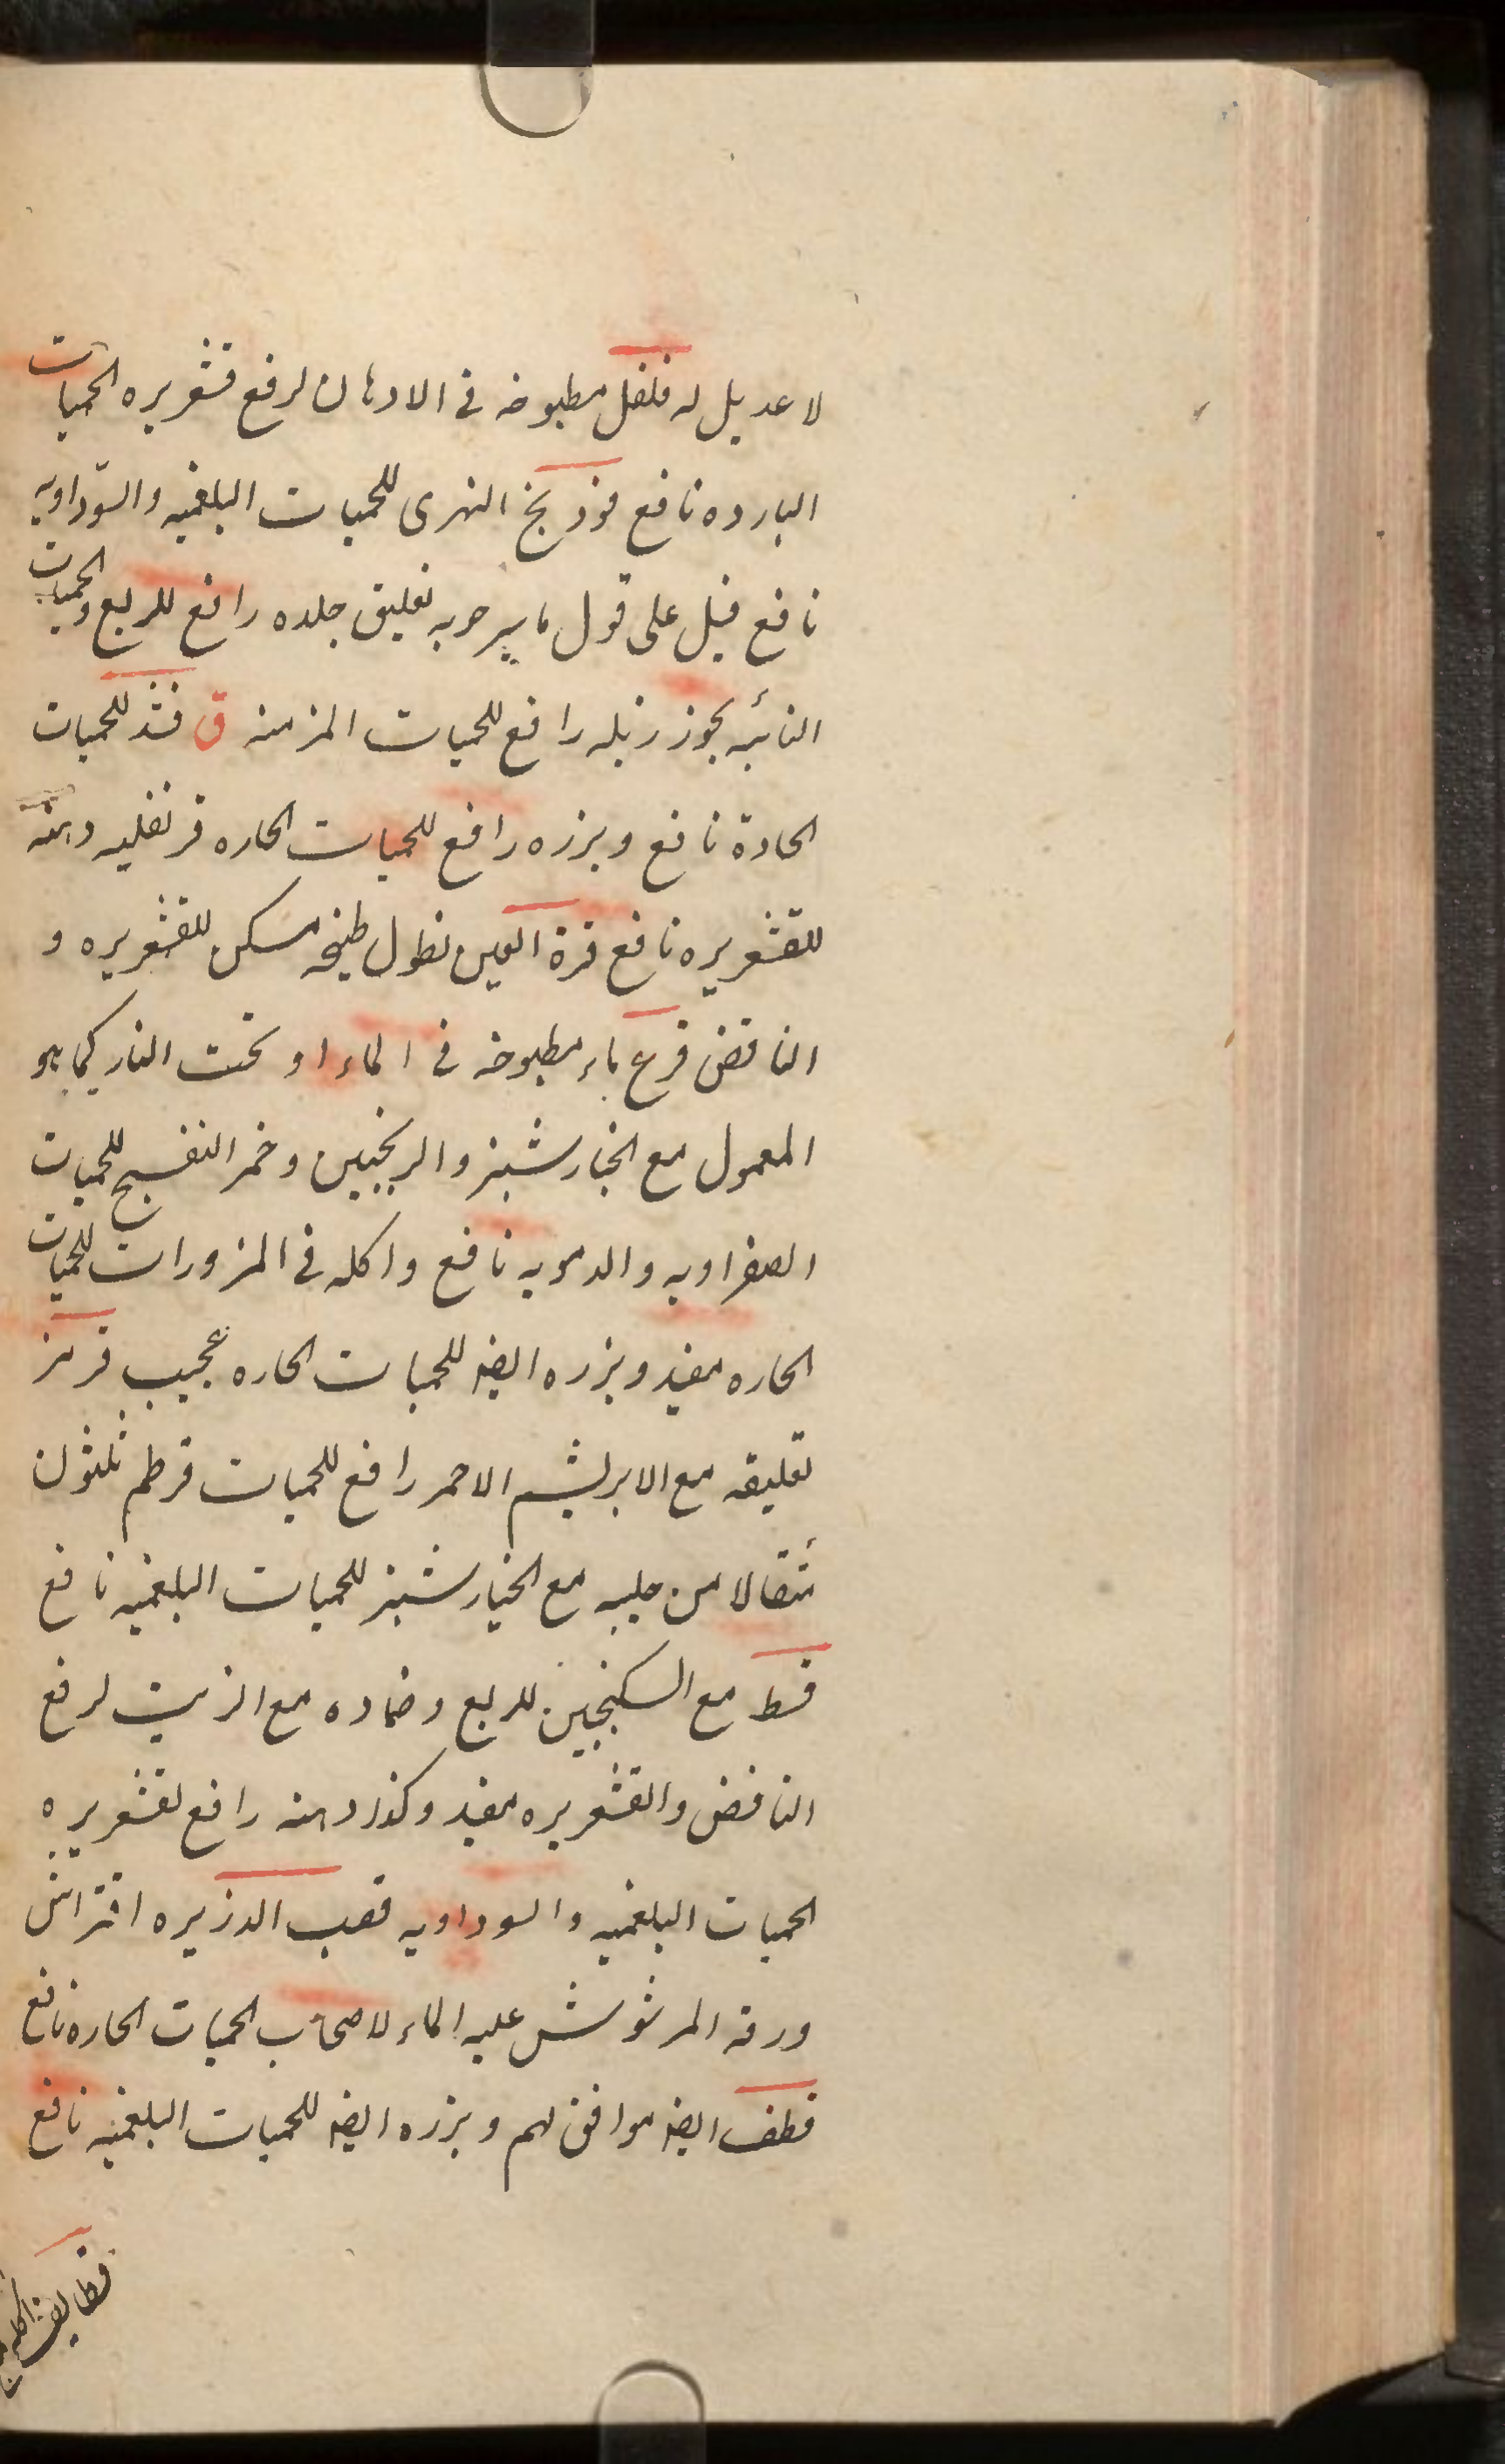 لا عديل له فلفل مطبوخه فى الادهان لرفع قشعريره الحميات
البارده نافع فوذنج النهرى للحميات البلغميه والسوّداويه
نافع فيل على قول ماسرحويه تعليق جلده رافع للربع والحميات
النائبه بجوز زبله رافع للحميات المزمنه ق قثد للحميات
الحادة نافع وبزره رافع للحميات الحاره قرنفليه دهنه
للقشعريره نافع قرة العين نطول طبيخه مسكن للقشعريره و
النافض قرع ماء مطبوخه فى الماء او تحت النار كما هو
المعمول مع الخيارشنبز والترنجبين وخمر البنفسج للحميات
الصفراويه والدمويه نافع واكله فى المزورات للحميات
الحاره مفيد وبزره ايضه للحميات الحاره عجيب قرمز
تعليقه مع الابريشم الاحمر رافع للحميات قرطم ثلثون
مثقالا من حليبه مع الخيارشنبز للحميات البلغميه نافع
قسط مع السكنجبين للربع وضماده مع الزيت لرفع
النافض والقشعريره مفيد وكذا دهنه رافع لقشعريره
الحميات البلغميه والسوداويه قصب الذريره افتراش
ورقه المرشوش عليه الماء لاصحاب الحميات الحاره نافع
قطف ايضه موافق لهم وبزره ايضه للحميات البلغميه نافع
قطايف اكله